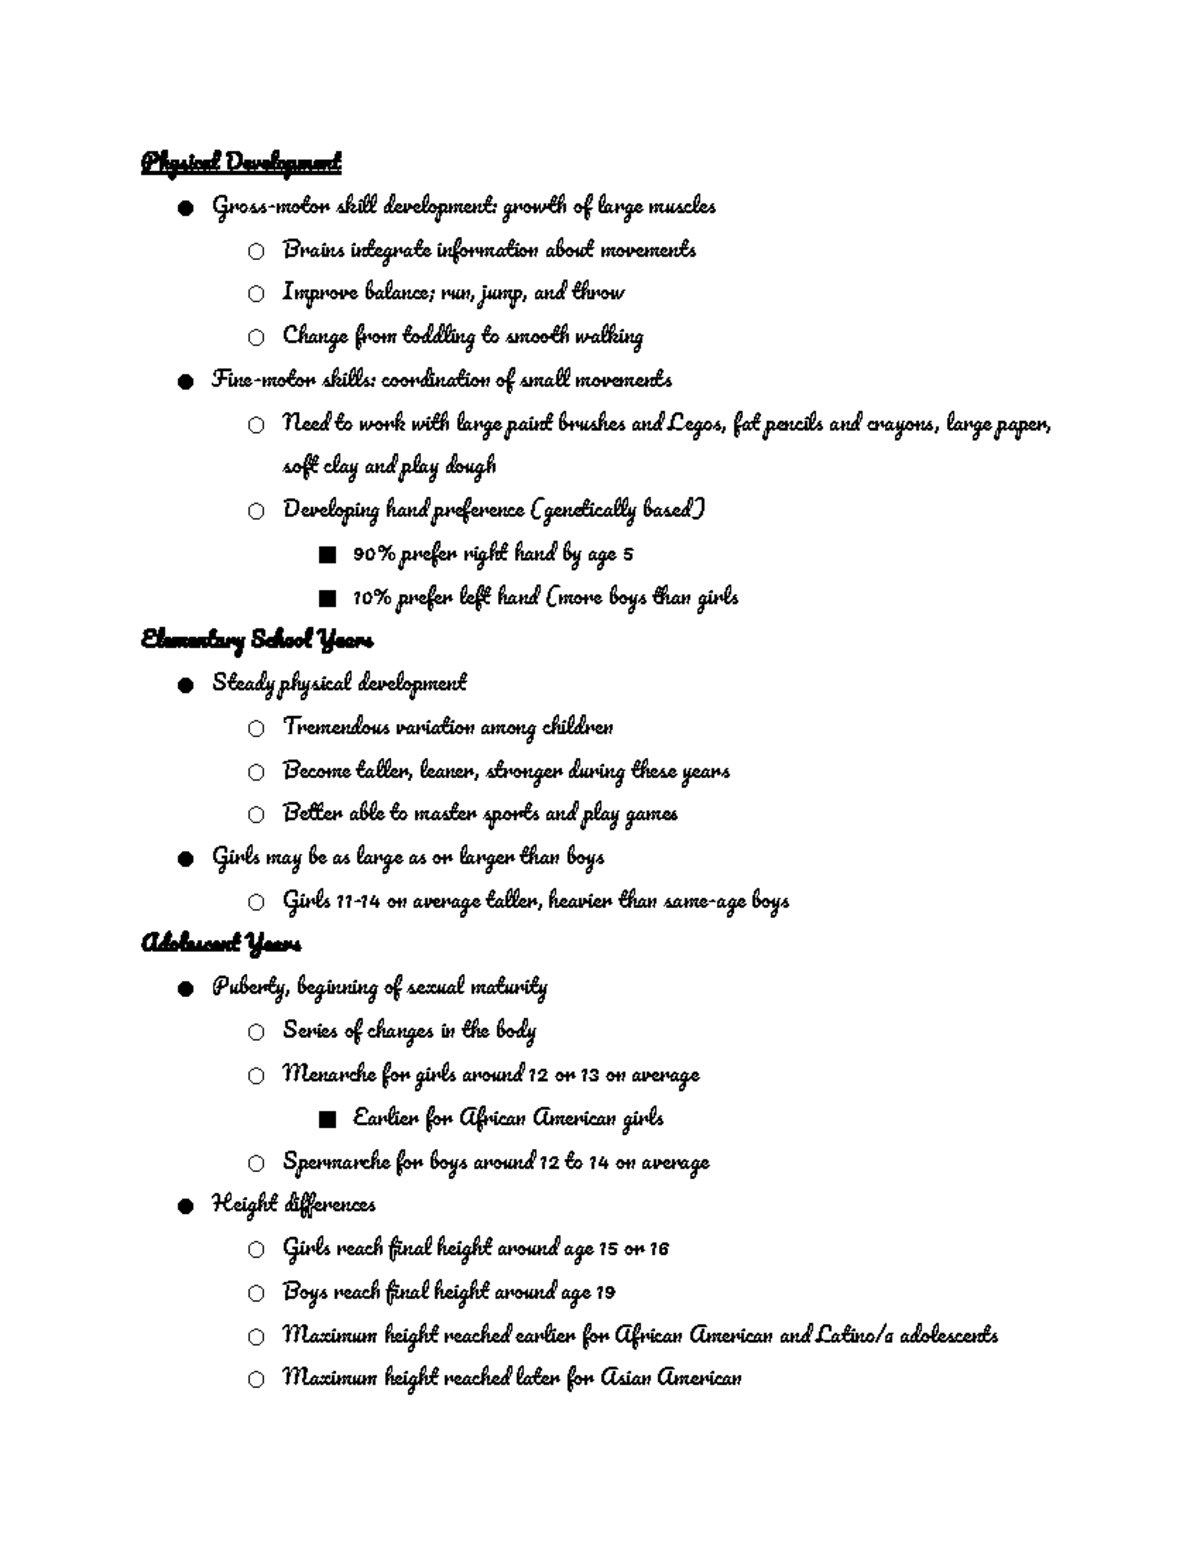 Physical Development
● Gross-motor skill development: growth of large muscles
○ Brains integrate information about movements
○ Improve balance; run, jump, and throw
○ Change from toddling to smooth walking
● Fine-motor skills: coordination of small movements
○ Need to work with large paint brushes and Legos, fat pencils and crayons, large paper,
soft clay and play dough
○ Developing hand preference (genetically based)
■ 90% prefer right hand by age 5
■ 10% prefer left hand (more boys than girls
Elementary School Years
● Steady physical development
○ Tremendous variation among children
○ Become taller, leaner, stronger during these years
○ Better able to master sports and play games
● Girls may be as large as or larger than boys
○ Girls 11-14 on average taller, heavier than same-age boys
Adolescent Years
● Puberty, beginning of sexual maturity
○ Series of changes in the body
○ Menarche for girls around 12 or 13 on average
■ Earlier for African American girls
○ Spermarche for boys around 12 to 14 on average
● Height differences
○ Girls reach final height around age 15 or 16
○ Boys reach final height around age 19
○ Maximum height reached earlier for African American and Latino/a adolescents
○ Maximum height reached later for Asian American